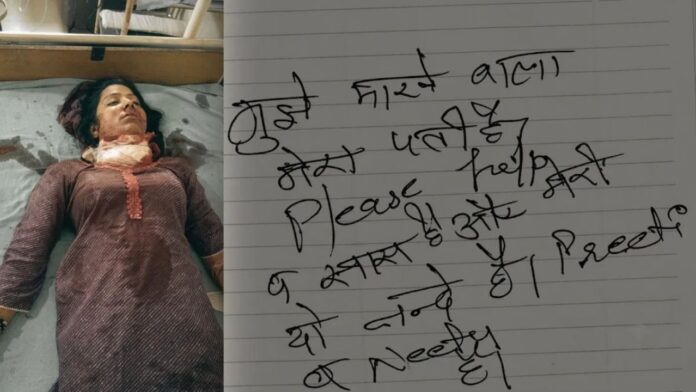 मुझे मारने वाला
मेरा पती है,
Please help
व सास है और मेरी
दो नन्दे है। Preeti
व Neetu
है।